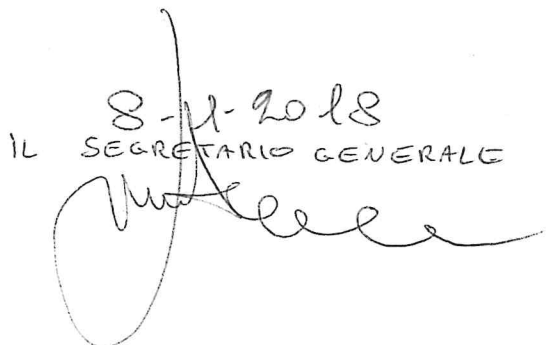 8-11-2018
IL SEGRETARIO GENERALE